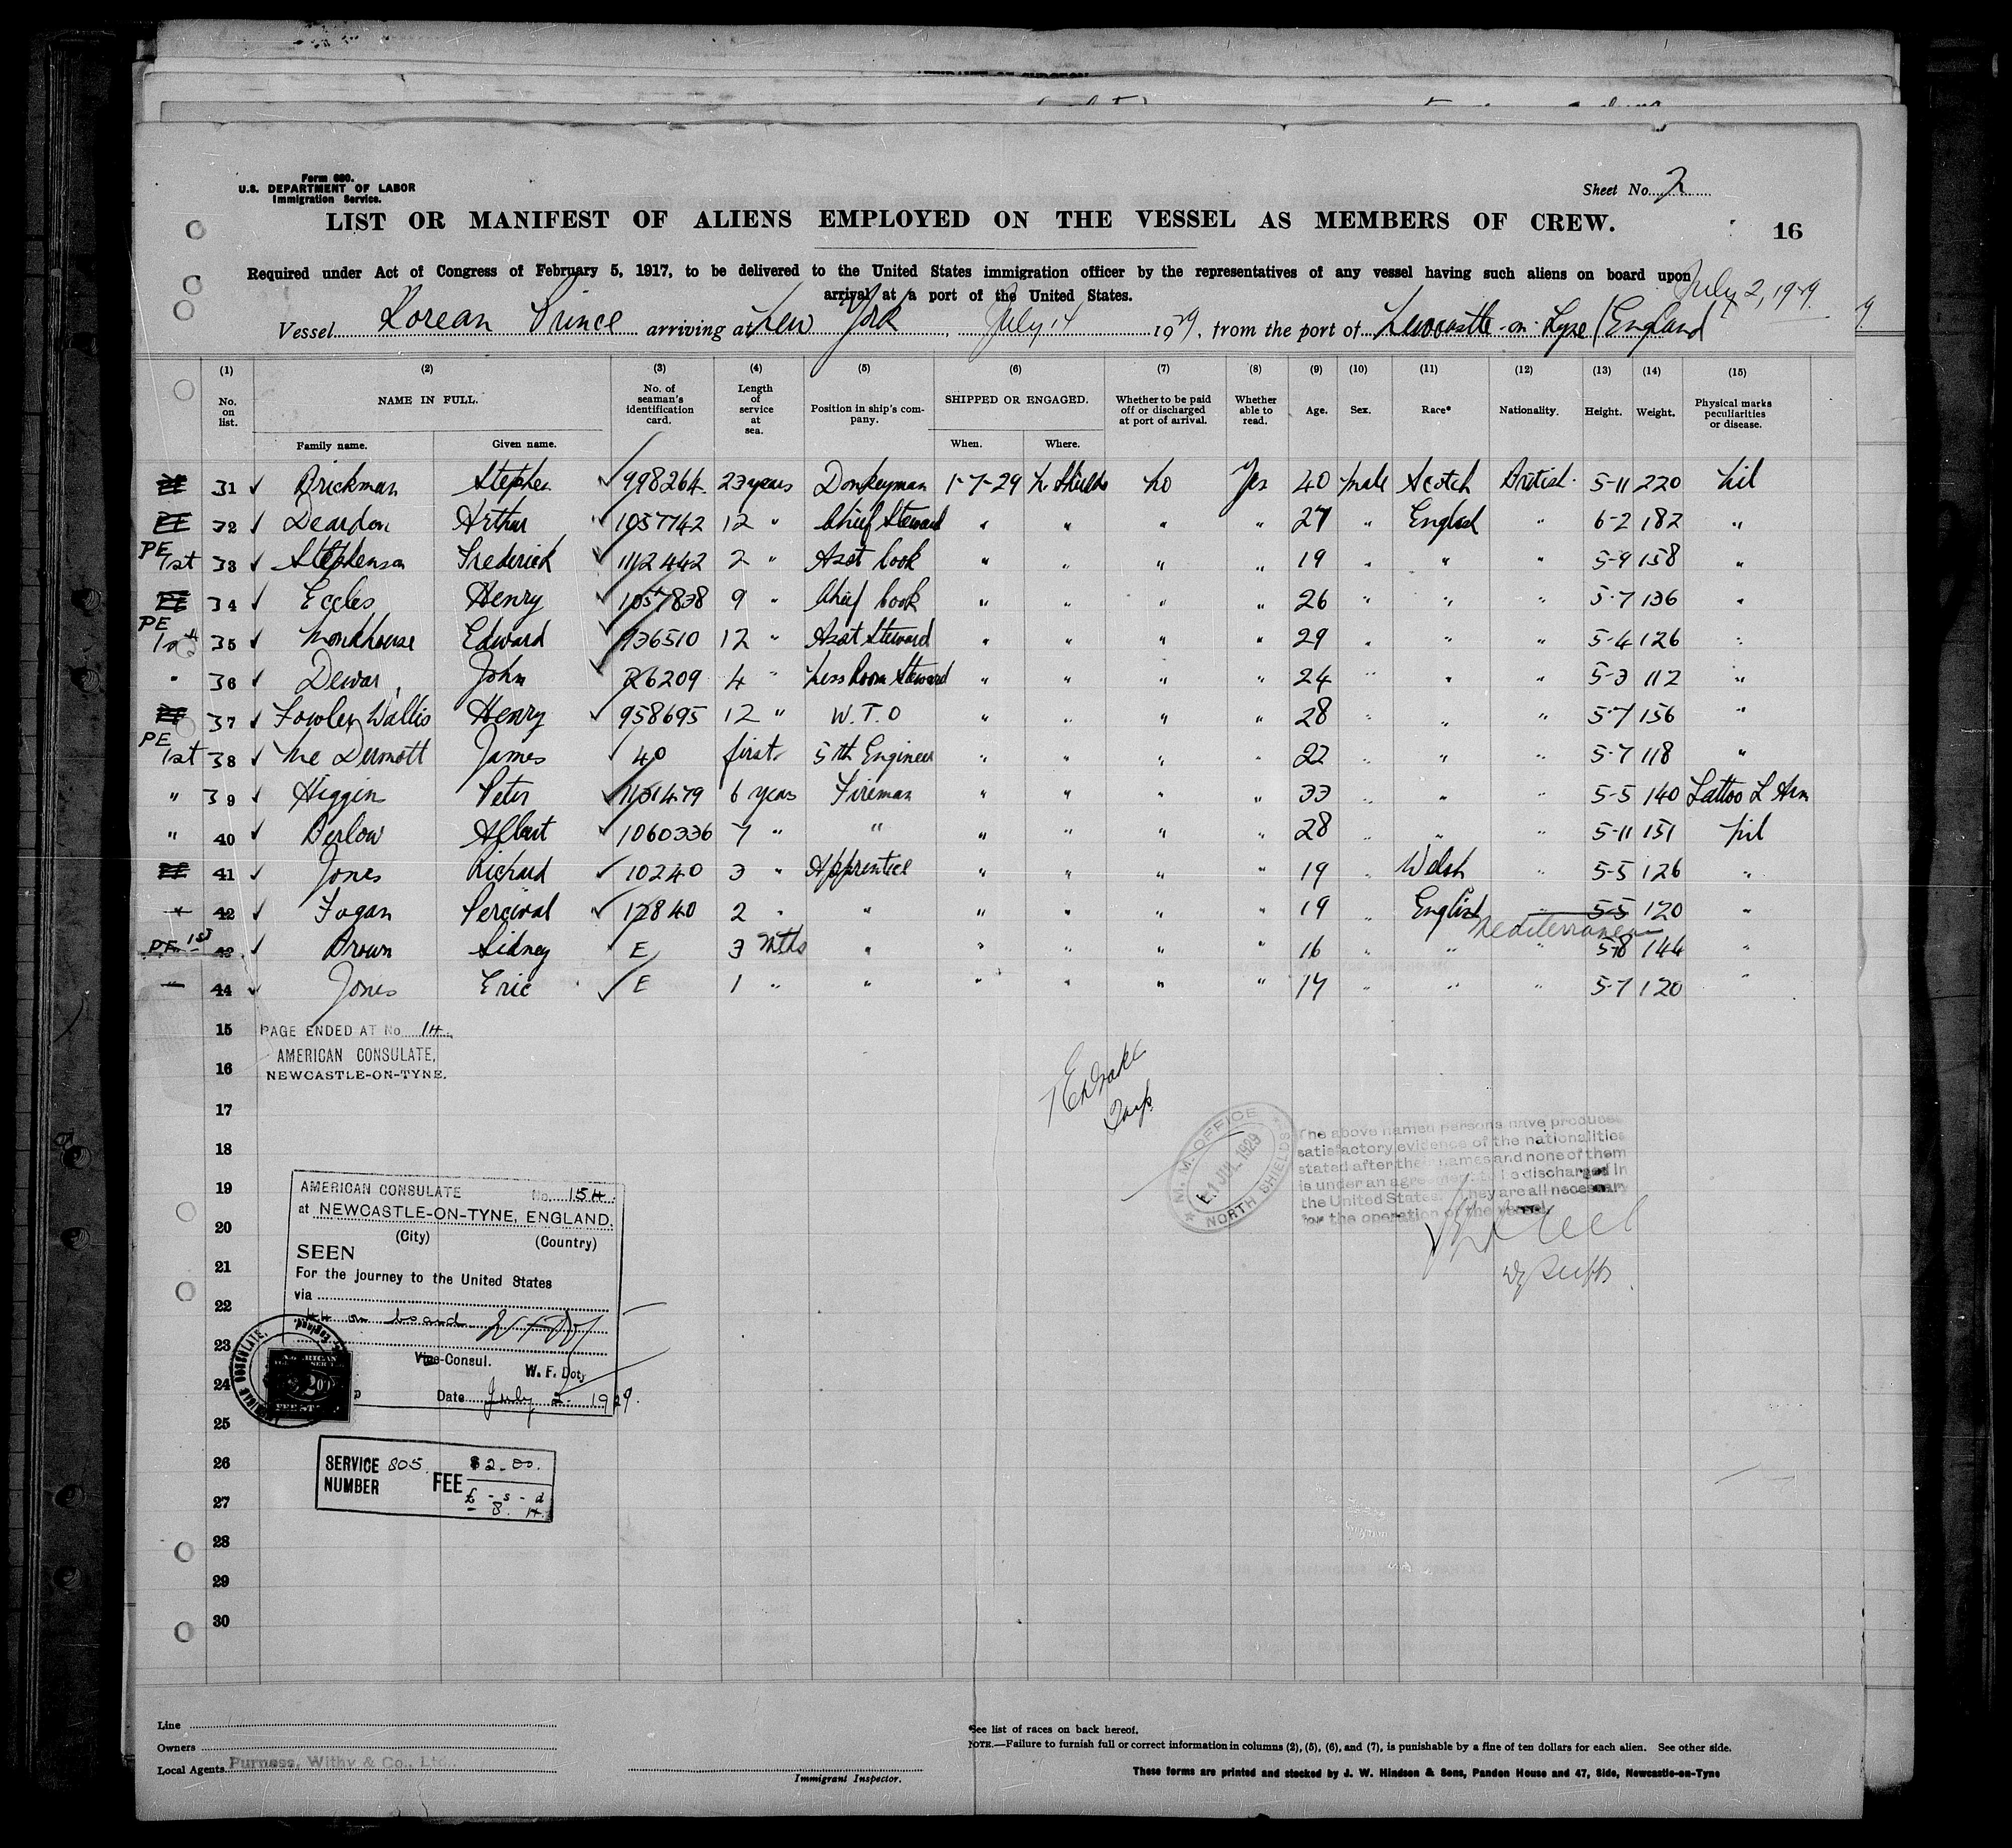 Form 680.
U.S. DEPARTMENT OF LABOR
Immigration Service.
Sheet No. 2
LIST OR MANIFEST OF ALIENS EMPLOYED ON THE VESSEL AS MEMBERS OF CREW.
16
Required under Act of Congress of February 5, 1917, to be delivered to the United States immigration officer by the representatives of any vessel having such aliens on board upon
arrival at a port of the United States.
July 2, 1929.
Vessel Korean Prince arriving at New York, July 14 1929, from the port of Newcastle-on-Tyne (England
(1) (2) (3) (4) (5) (6) (7) (8) (9) (10) (11) (12) (13) (14) (15)
No. on list. NAME IN FULL. No. of seaman's identification card. Length of service at sea. Position in ship's company. SHIPPED OR ENGAGED. Whether to be paid off or discharged at port of arrival. Whether able to read. Age. Sex. Race* Nationality. Height. Weight. Physical marks peculiarities or disease.
Family name. Given name. When. Where.
31 ✓ Brickman Stephen 998264 23 years Donkeyman 1-7-29 N. Shields No Yes 40 male Scotch British 5-11 220 Nil
32 ✓ Deardon Arthur 1057742 12 " Chief Steward " " " " 27 " English " 6-2 182 "
PE 1st 33 ✓ Stephenson Frederick 1112442 2 " Asst Cook " " " " 19 " " " 5-9 158 "
34 ✓ Eccles Henry 1057838 9 " Chief Cook " " " " 26 " " " 5-7 136 "
PE 1st 35 ✓ Monkhouse Edward 936510 12 " Asst Steward " " " " 29 " " " 5-4 126 "
" 36 ✓ Dewar John 26209 4 " Mess Room Steward " " " " 24 " " " 5-3 112 "
37 ✓ Fowler Wallis Henry 958695 12 " W.T.O " " " " 28 " " " 5-7 156 "
PE 1st 38 ✓ Mc Dermott James 40 first 5th Engineer " " " " 22 " " " 5-7 118 "
" 39 ✓ Higgins Peter 1131479 6 years Fireman " " " " 33 " " " 5-5 140 Tattoo L Arm
" 40 ✓ Berlow Albert 1060336 7 " " " " " " 28 " " " 5-11 151 Nil
41 ✓ Jones Richard 10240 3 " Apprentice " " " " 19 " Welsh " 5-5 126 "
" 42 ✓ Fogan Percival 12840 2 " " " " " " 19 " English " 5-5 120 "
Mediterranean
PE 1st 43 ✓ Brown Sidney E 3 mths " " " " " 16 " " " 5-8 144 "
" 44 ✓ Jones Eric E 1 " " " " " " 17 " " " 5-7 120 "
15 PAGE ENDED AT No 14
AMERICAN CONSULATE,
16 NEWCASTLE-ON-TYNE.
17
18
M. M. OFFICE
1 JUL 1929
NORTH SHIELDS
The above named persons have produced
satisfactory evidence of the nationalities
stated after their names and none of them
is under an agreement to be discharged in
the United States. They are all necessary
for the operation of the vessel.
19
AMERICAN CONSULATE No. 154
20
at NEWCASTLE-ON-TYNE, ENGLAND.
(City) (Country)
SEEN
21
For the journey to the United States
via
22
44 on board
23
Vice-Consul.
W. F. Doty
24
Date July 2 1929.
25
26
SERVICE NUMBER 805 FEE $2.00.
£ - s - d
- 8. 4.
27
28
29
30
Line
Owners
Local Agents Furness, Withy & Co., Ltd.
Immigrant Inspector.
*See list of races on back hereof.
NOTE.—Failure to furnish full or correct information in columns (2), (5), (6), and (7), is punishable by a fine of ten dollars for each alien. See other side.
These forms are printed and stocked by J. W. Hindson & Sons, Pandon House and 47, Side, Newcastle-on-Tyne